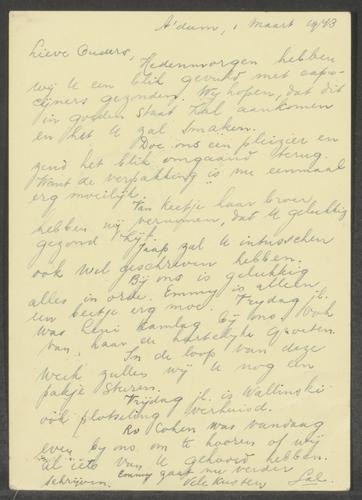 A'dam, 1 Maart 1943
Lieve Ouders,
Hedenmorgen hebben
wij U een blik gevuld met capu-
cijners gezonden. Wij hopen, dat dit
in goeden staat zal aankomen
en het U zal smaken.
Doe ons een plezier en
zend het blik omgaand terug.
Want de verpakking is nu eenmaal
erg moeilijk.
Van Keetje haar broer
hebben wij vernomen, dat U gelukkig
gezond zijt.
Jaap zal U intusschen
ook wel geschreven hebben.
Bij ons is gelukkig
alles in orde. Emmy is alleen
een beetje erg moe. Vrijdag jl.
was Leni bij ons. Ook
van haar de hartelijke groeten.
In de loop van deze
week zullen wij U nog een
pakje sturen.
Vrijdag jl. is Wallinski
ook plotseling verhuisd.
Ro Cohen was vandaag
even bij ons om te hooren of wij
al iets van U gehoord hebben.
Emmy gaat nu verder
schrijven. Vele kusten Sal.